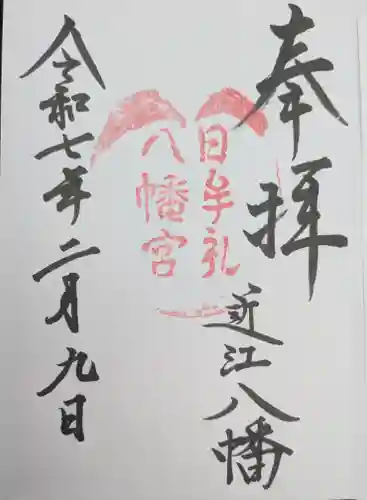 奉拝
近江八幡
日牟礼
八幡宮
令和七年二月九日